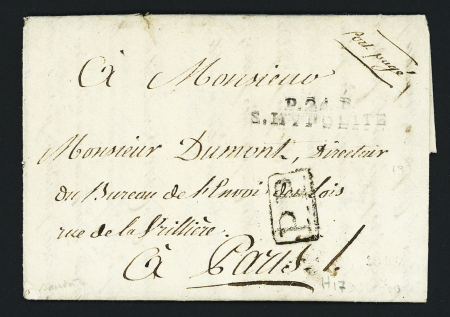 Port payé
À Monsieur
P.24.P.
S.HYPOLITE
Monsieur Dumont, Directeur
du Bureau de l'Envoi des Lois
rue de la Vrillière.
P.P.
À Paris